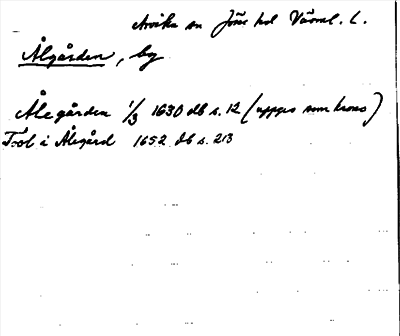 Arvika sn Jösse hd Värml. l.
Ålgården, by
Ålegården 1/3 1630 db s. 12 (uppges som krono)
i Ålegård 1652 db s. 213